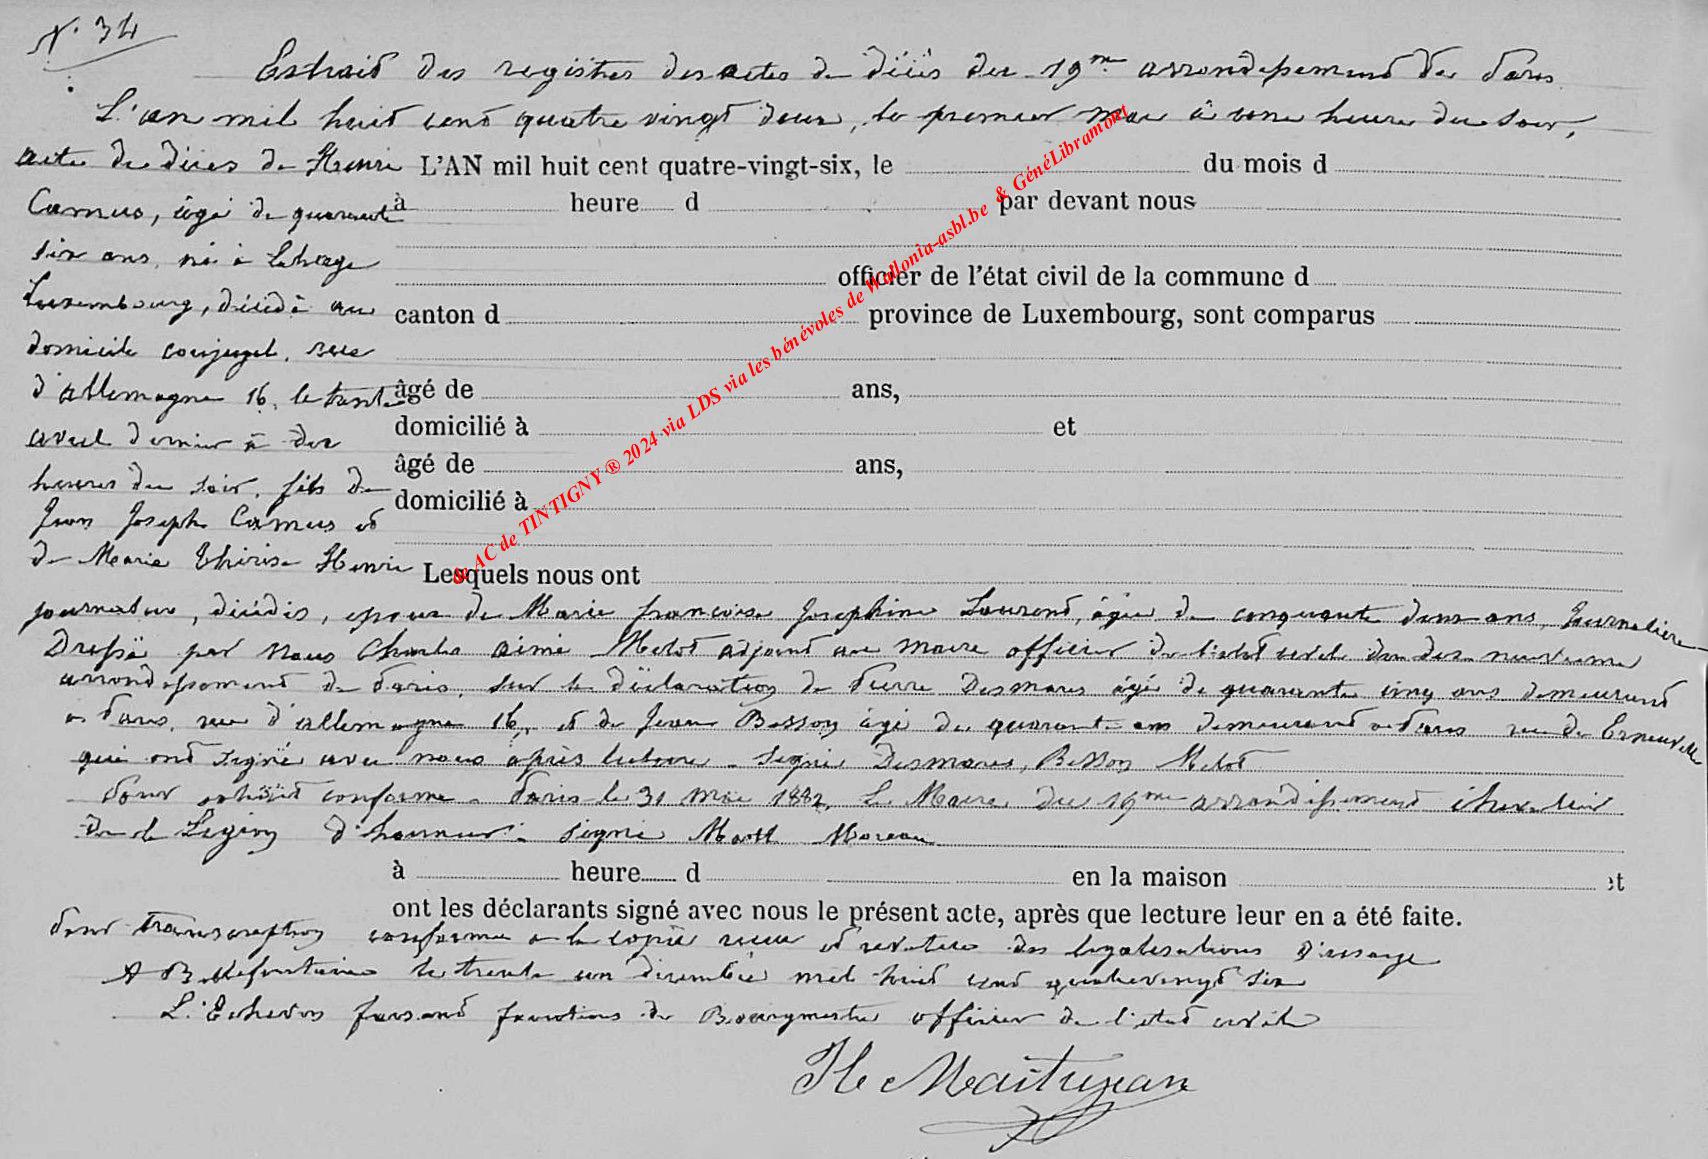 N. 34
Extrait des registres des actes de décès du 19me arrondissement de Paris
L'an mil huit cent quatre vingt deux, le premier mai à une heure du soir,
acte de décès de Henri
Camus, âgé de quarante
six ans, né à Lahage
Luxembourg, décédé au
domicile conjugal, rue
d'allemagne 16, le trente
avril dernier à dix
heures du soir, fils de
Jean Joseph Camus et
de Marie Thérèse Henri
L'AN mil huit cent quatre-vingt-six, le du mois d
à heure d par devant nous
officier de l'état civil de la commune d
canton d province de Luxembourg, sont comparus
âgé de ans,
domicilié à et
âgé de ans,
domicilié à
Lesquels nous ont
journalier, décédés, époux de Marie françoise Josephine Laurent, âgée de cinquante deux ans, Journalière
Dressé par Nous Charles aimé Melot adjoint au Maire officier de l'état civil du dix neuvieme
arrondissement de Paris, sur la déclaration de Pierre Desmares âgé de quarante cinq ans demeurant
à Paris, rue d'allemagne 16, et de Jean Besson âgé de quarante ans demeurant à Paris rue de
qui ont signé avec nous après lecture. signé Desmares, Besson Melot
Pour extrait conforme. Paris le 31 Mai 1882. Le Maire du 19me arrondissement chevalier
de la Légion d'honneur. signé Moreau
à heure d en la maison et
ont les déclarants signé avec nous le présent acte, après que lecture leur en a été faite.
Pour transcription conforme a la copie recue et revetue des legalisations d'usage
A Bellefontaine le trente un décembre mil huit cent quatrevingt six
L'Echevin faisant fonctions de Bourgmestre officier de l'état civil
AC de TINTIGNY ® 2024 via LDS via les bénévoles de Wallonia-asbl.be & GénéLibramont